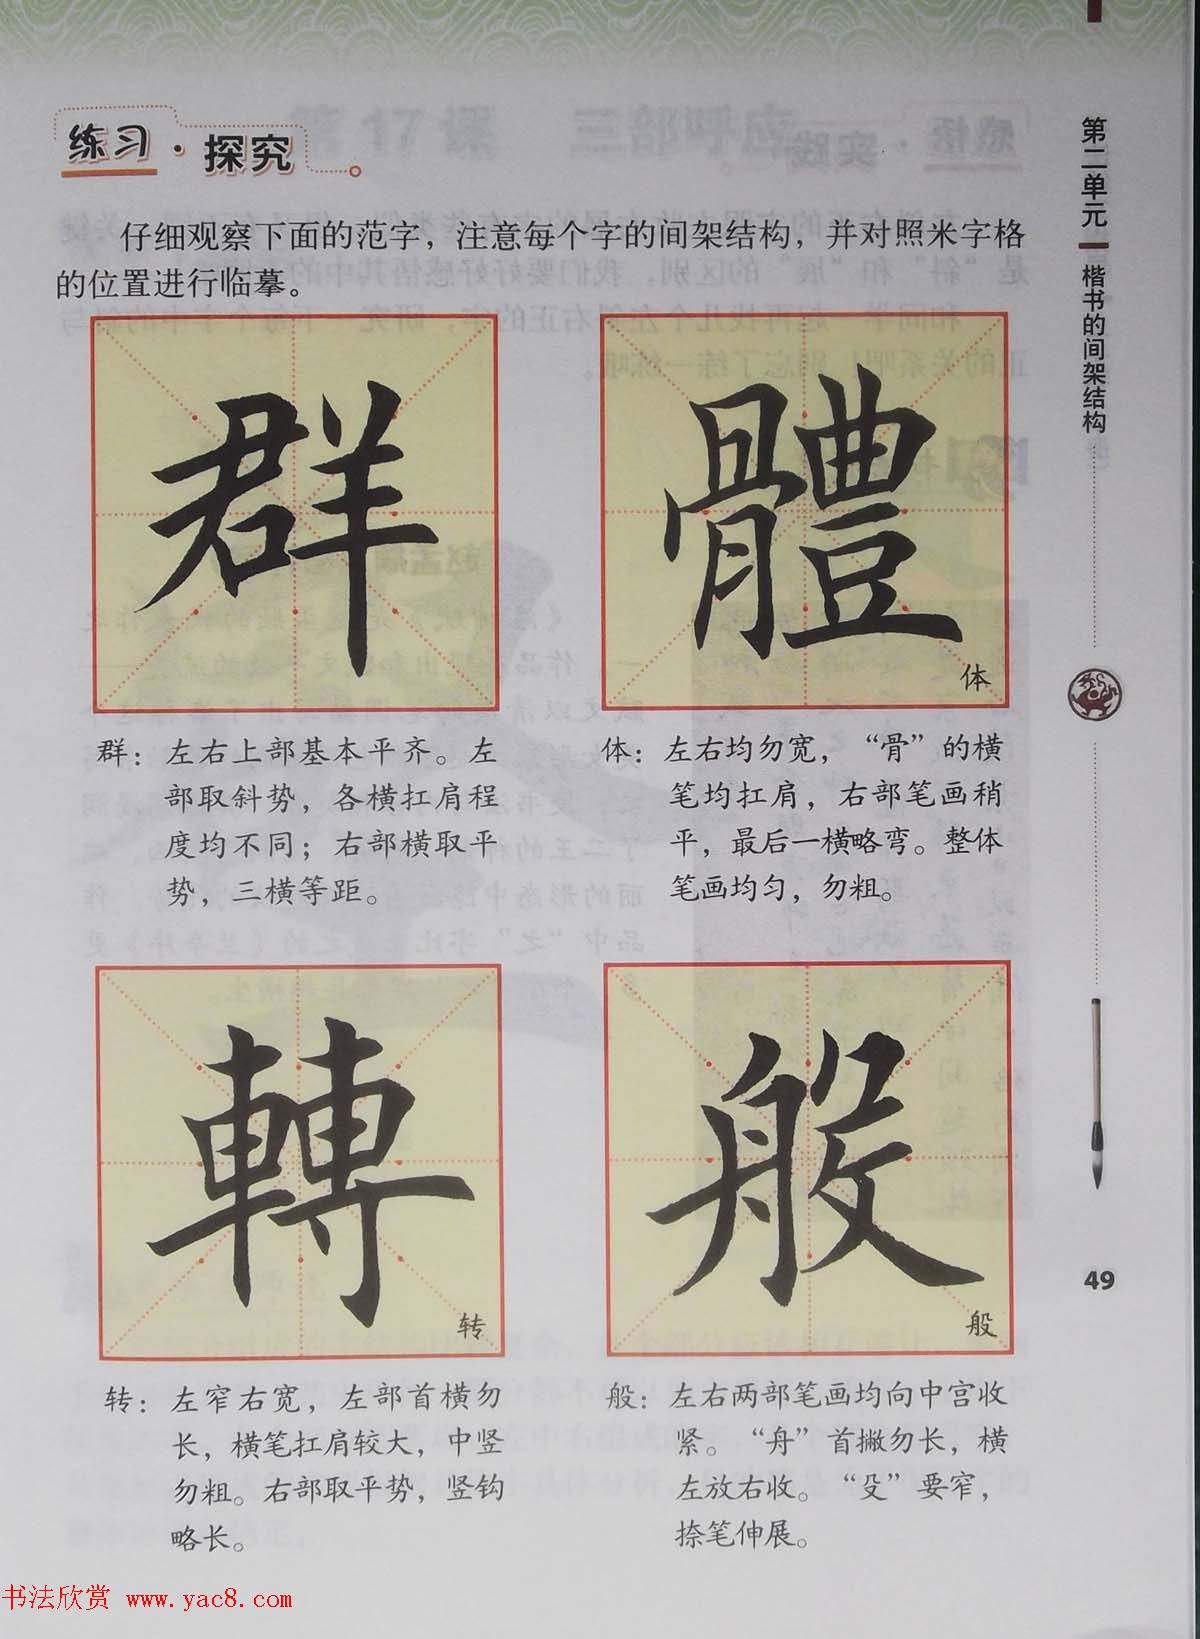 练习·探究
仔细观察下面的范字，注意每个字的间架结构，并对照米字格
的位置进行临摹。
群
體
体
群：左右上部基本平齐。左
部取斜势，各横扛肩程
度均不同；右部横取平
势，三横等距。
体：左右均勿宽，“骨”的横
笔均扛肩，右部笔画稍
平，最后一横略弯。整体
笔画均匀，勿粗。
轉
转
般
般
转：左窄右宽，左部首横勿
长，横笔扛肩较大，中竖
勿粗。右部取平势，竖钩
略长。
般：左右两部笔画均向中宫收
紧。“舟”首撇勿长，横
左放右收。“殳”要窄，
捺笔伸展。
第二单元
楷书的间架结构
49
书法欣赏 www.yac8.com